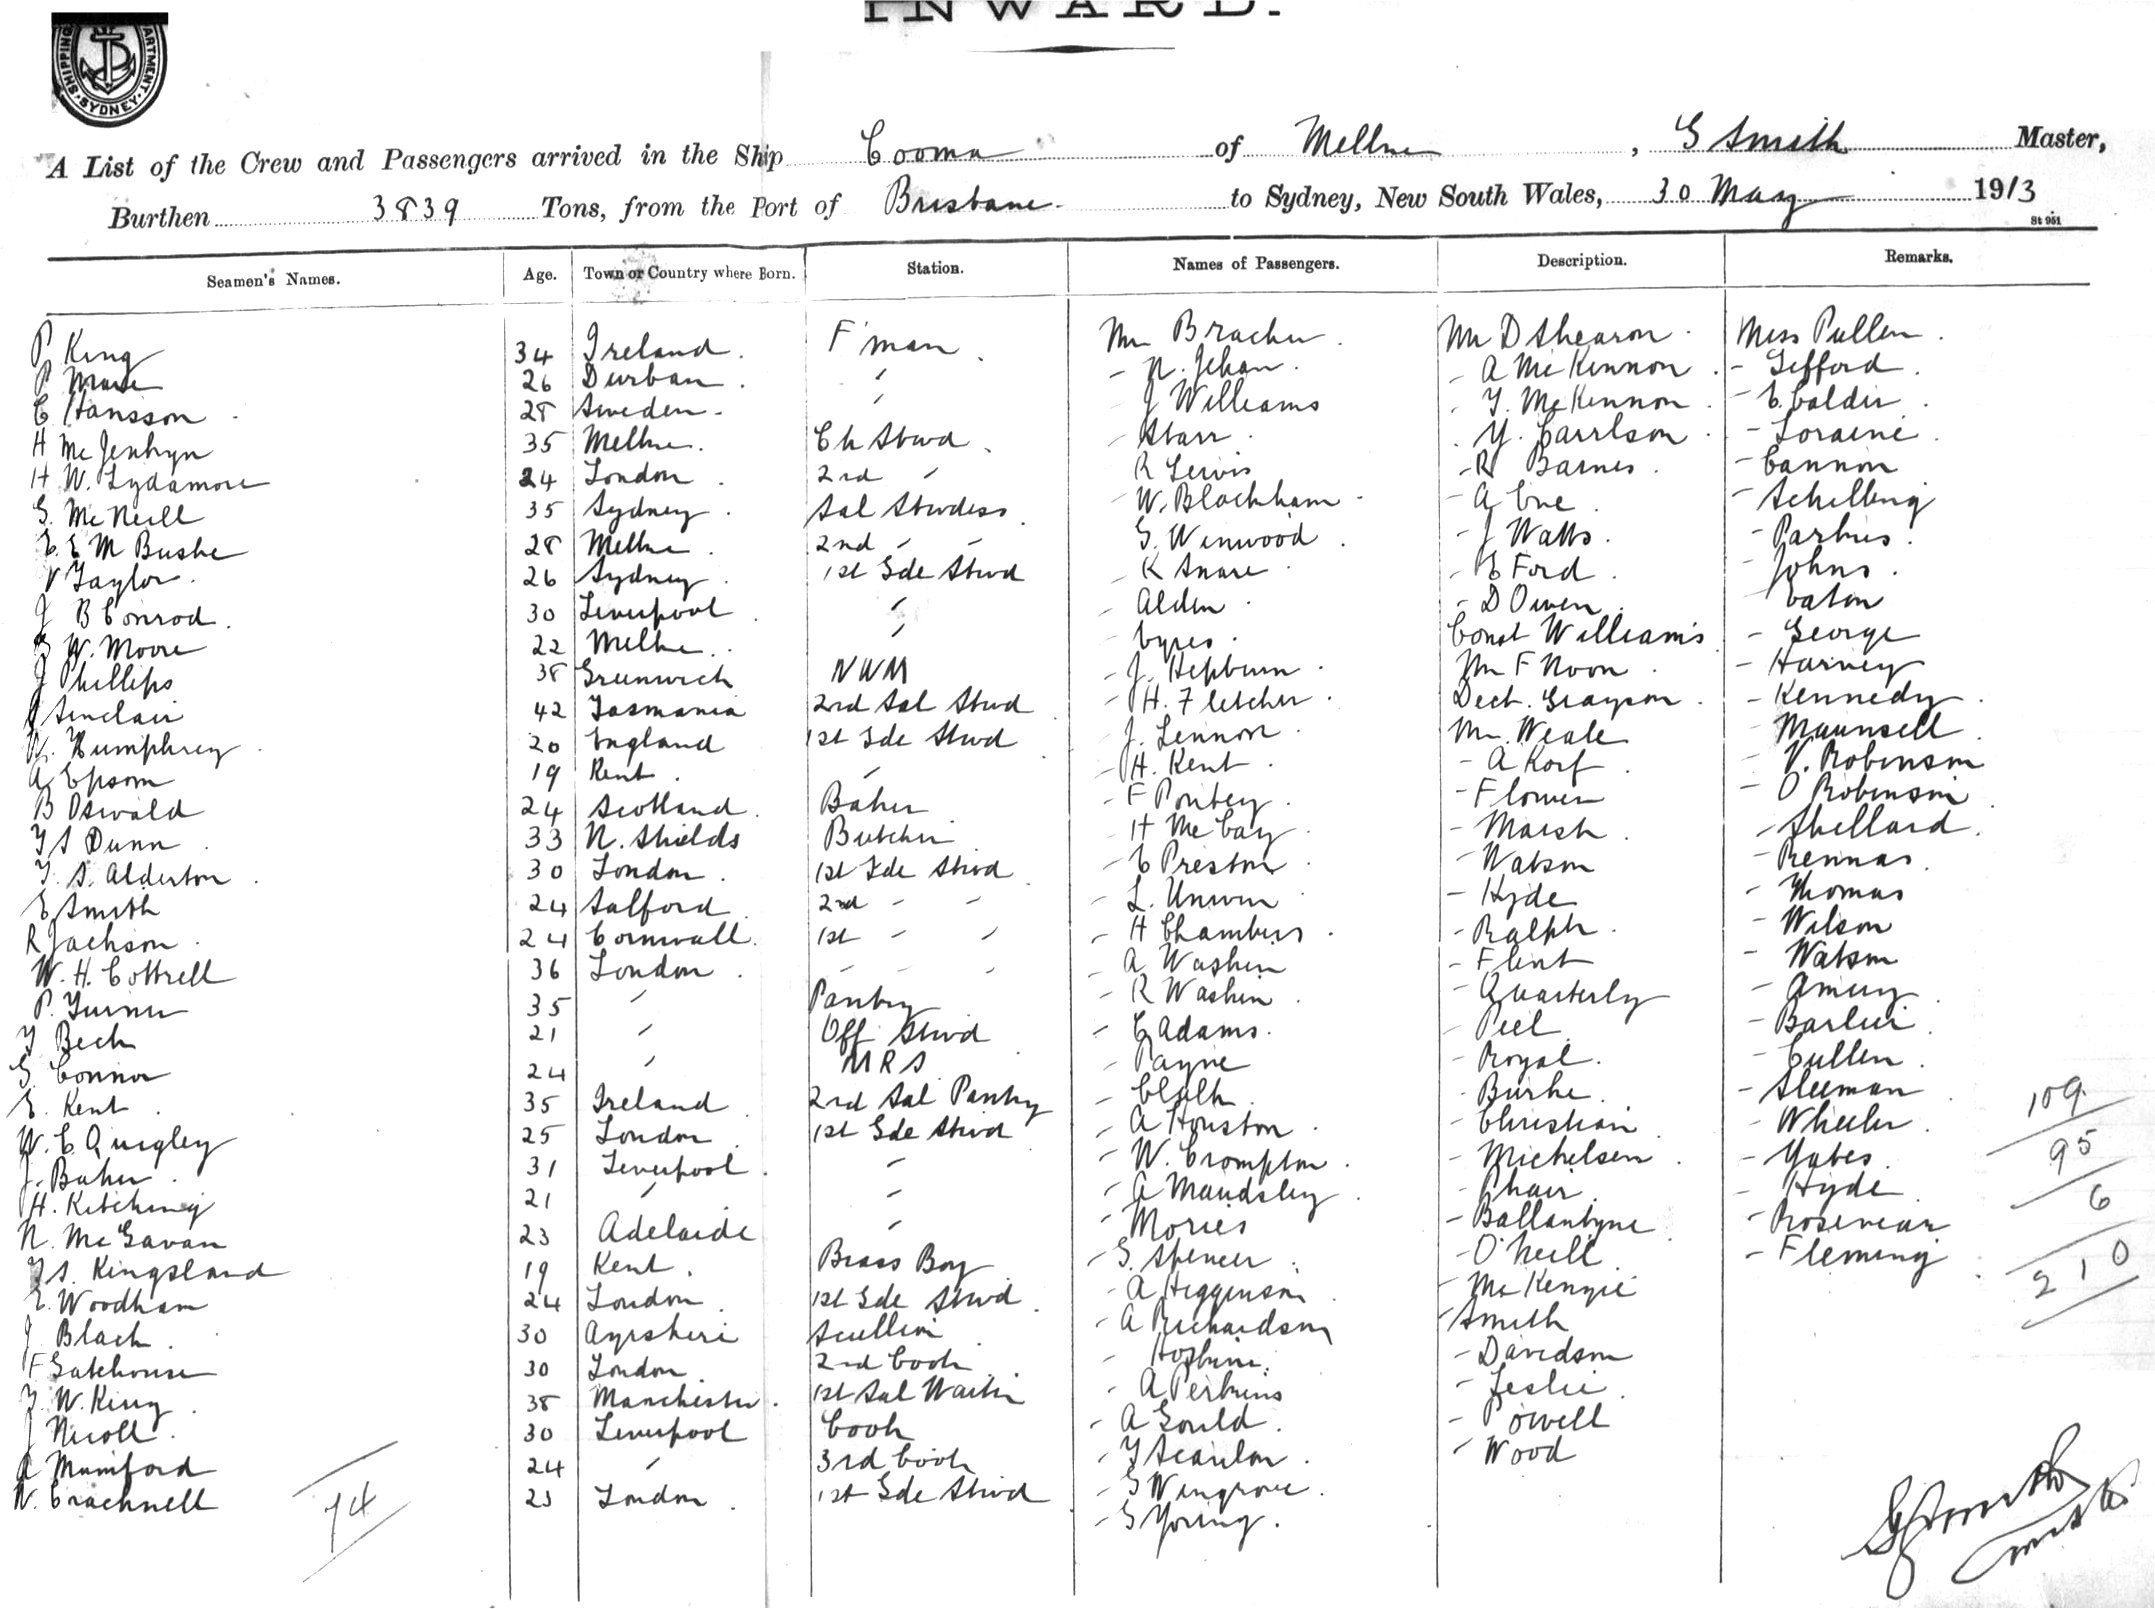 INWARD.
SHIPPING DEPARTMENT SYDNEY
A List of the Crew and Passengers arrived in the Ship Cooma of Melbne, G Smith Master,
Burthen 3839 Tons, from the Port of Brisbane to Sydney, New South Wales, 30 May 1913
St 951
Seamen's Names. Age. Town or Country where Born. Station. Names of Passengers. Description. Remarks.
P King 34 Ireland. F'man. Mr Bracher. Mr D Shearon. Miss Pullen.
P 26 Durban. " - N. Jehan. - A McKinnon. - Gifford.
C Hansson 28 Sweden. " J Williams - T. McKinnon. - C. Calder.
H McJenkyn 35 Melbne. Ch Stwd. - Starr. - Y. Carrlson. - Loraine.
H W. Lydamore 24 London. 2nd " R Lewis - R Barnes. - Cannon
G. McNeill 35 Sydney. Sal Stwdess. - W. Blackham. - A Cue. - Schilling
E. E M Bushe 28 Melbne. 2nd - - - G. Winwood. - J Watts. - Parkes.
V Taylor. 26 Sydney. 1st Gde Stwd - K Snare. - E Ford. - Johns.
J B Conrod. 30 Liverpool " - Alden. - D Owen. - Eaton
W. Moore 22 Melbne. " - Const Williams - George
J Phillips 38 Greenwich NWM - J. Hepburn. Mr F Noon. - Harvey
Sinclair 42 Tasmania 2nd Sal Stwd - H. Fletcher. Dect. Grayson. - Kennedy.
W. Humphrey 20 England 1st Gde Stwd - J. Lennon. Mr. Weale - Maunsell.
A Epsom 19 Kent. " - H. Kent. - A Korf. - V. Robinson
B Oswald 24 Scotland. Baker - F Pontey. - Flower - O Robinson
T S Dunn 33 N. Shields Butcher - H McCay. - Marsh. - Shellard.
T. S. Alderton. 30 London. 1st Gde Stwd - E Preston. - Watson - Rennas.
E Smith 24 Salford. 2nd - - - L. Unwin - Hyde - Thomas
R Jackson. 24 Cornwall. 1st - - - H Chambers. - Ralph. - Wilson
W. H. Cottrell 36 London. - - - - A Waskin - Flint - Watson
P. Turner 35 " Pantry - R Waskin. - Quarterly - Amery.
T Beck 21 " Off Stwd - E Adams. - Peel. - Barlow.
G. Connor 24 " MRS - Payne - Royal. - Cullen.
E. Kent. 35 Ireland. 2nd Sal Pantry - - Burke. - Sleeman 109
W. C Quigley 25 London. 1st Gde Stwd - A Houston. - Christian. - Wheeler. 95
J. Baker. 31 Liverpool. " - W. Crompton. - Michelsen. - Yates. 6
H. Kitching 21 " " - A Maudsley. - Phair. - Hyde. 210
N. McGavan 23 Adelaide " - Mories - Ballantyne. - Rosevear
T S. Kingsland 19 Kent. Brass Boy - G. Spencer. - O'Neill. - Fleming.
E. Woodham 24 London. 1st Gde Stwd. - A Higginson. - McKenzie
J Black. 30 Ayrshire Scullion - A Richardson - Smith
F Gatehouse 30 London. 2nd Cook - Hoskin. - Davidson
T. W. King. 38 Manchester. 1st Sal Waiter - A Perkins - Leslie.
J Nicoll. 30 Liverpool Cook - A Gould. - Powell
A Mumford 24 " 3rd Cook - T Scanlon. - Wood
W. Cracknell 23 London. 1st Gde Stwd - G Wingrove.
74 - G Young.
G Smith
Master